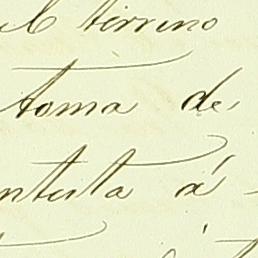 el terreno
toma de
ntesta á